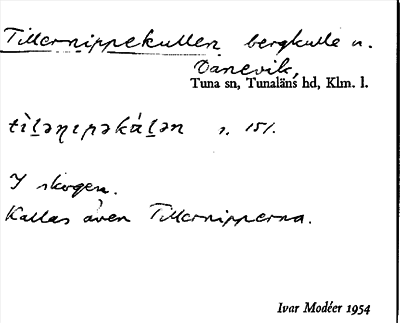 Tillernippekullen bergkulle n.
Danevik,
Tuna sn, Tunaläns hd, Klm. l.
tìḷəṇɩpəkáḷən s. 151.
I skogen.
Kallas även Tillernipperna.
Ivar Modéer 1954